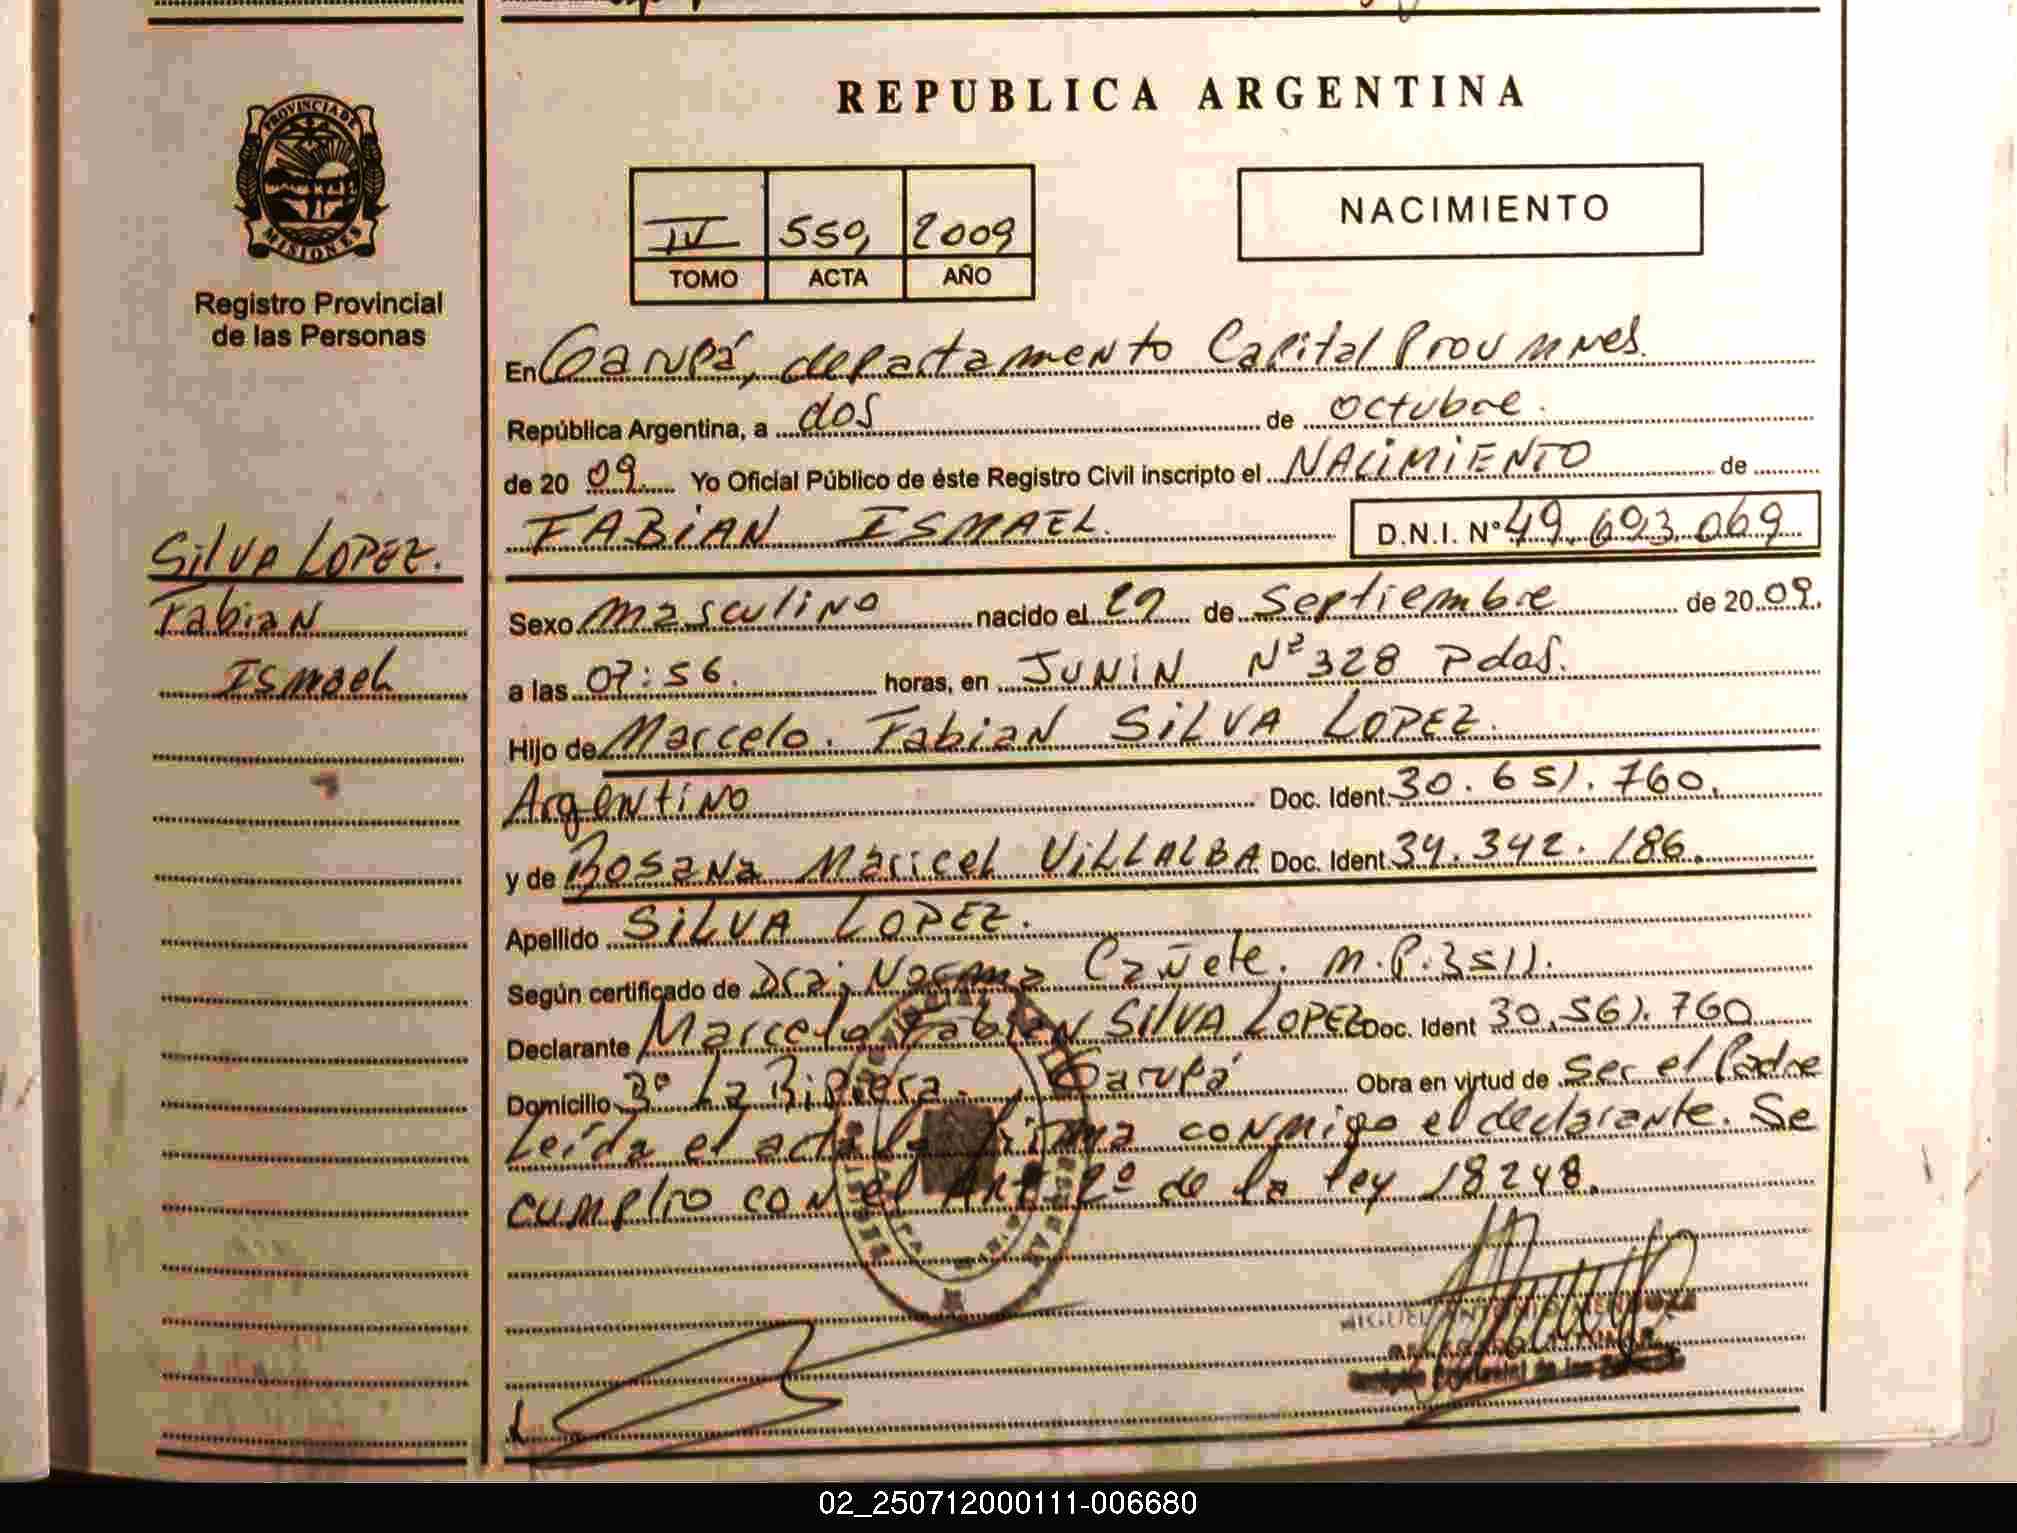 REPUBLICA ARGENTINA
PROVINCIA DE
MISIONES
Registro Provincial
de las Personas
IV 559 2009
TOMO ACTA AÑO
NACIMIENTO
En Garupá, departamento Capital Prov mnes.
República Argentina, a dos de octubre.
de 2009. Yo Oficial Público de éste Registro Civil inscripto el NACIMIENTO de
FABIAN ISMAEL. D.N.I. Nº 49.693.069
SILVA LOPEZ.
Fabian
Ismael
Sexo masculino nacido el 29 de Septiembre de 2009.
a las 07:56. horas, en JUNIN Nº 328 Pdas.
Hijo de Marcelo. Fabian SILVA LOPEZ.
Argentino Doc. Ident. 30.651.760.
y de Rosana Maricel VILLALBA Doc. Ident. 34.342.186.
Apellido SILVA LOPEZ.
Según certificado de Dra; Norma Cañete. M.P.3511.
Declarante Marcelo Fabian SILVA LOPEZ Doc. Ident 30.561.760
Domicilio Bº La Ribiera. , Garupá Obra en virtud de ser el Padre
Leída el acta la firma conmigo el declarante. Se
cumplio con el Art 2º de la ley 18248.
MIGUEL ANTONIO MENDOZA
02_250712000111-006680